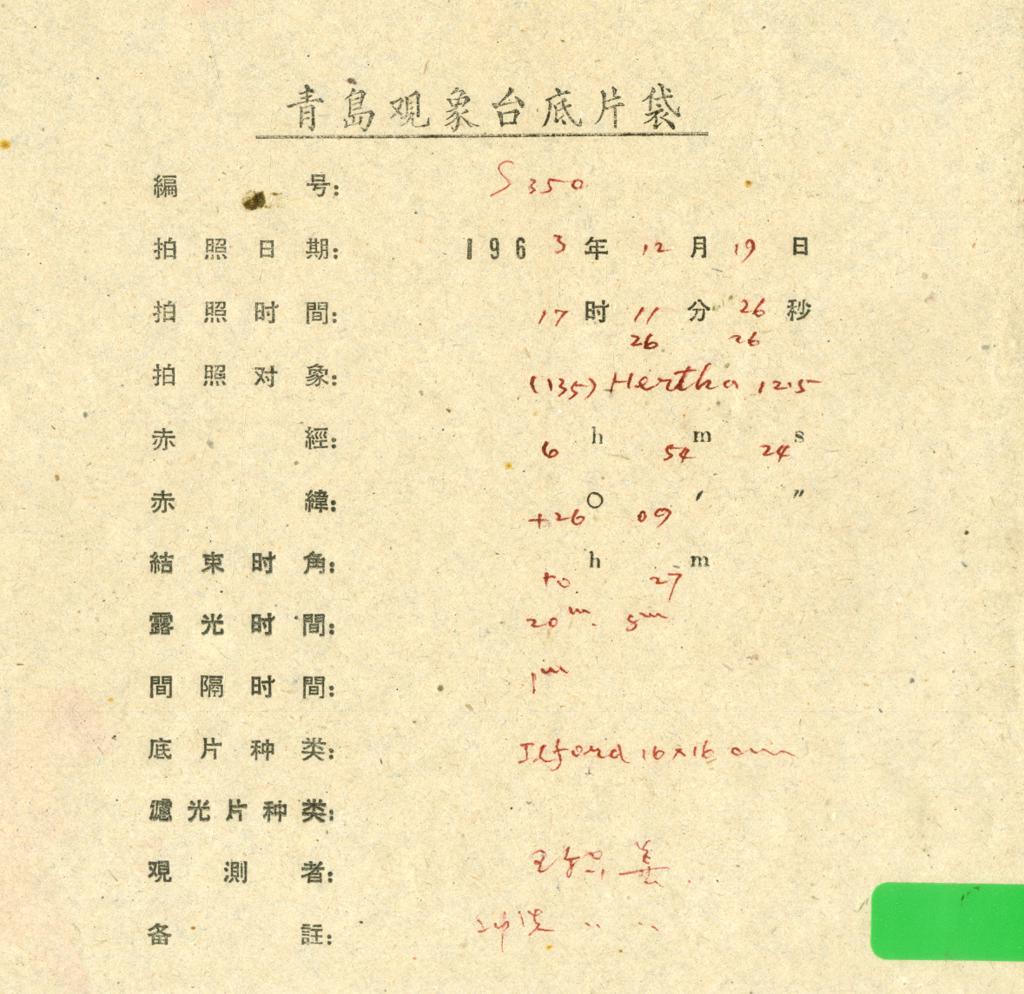 青島观象台底片袋
編号: S 350
拍照日期: 1963年12月19日
拍照时間: 17时11分26秒
26 26
拍照对象: (135) Hertha 12.5
赤經: 6h 54m 24s
赤緯: +26° 09′ ″
結束时角: +0h 27m
露光时間: 20m. 5m
間隔时間: 1m
底片种类: Ilford 16×16 cm
濾光片种类:
观測者: 王
备註: 冲洗 〃 〃